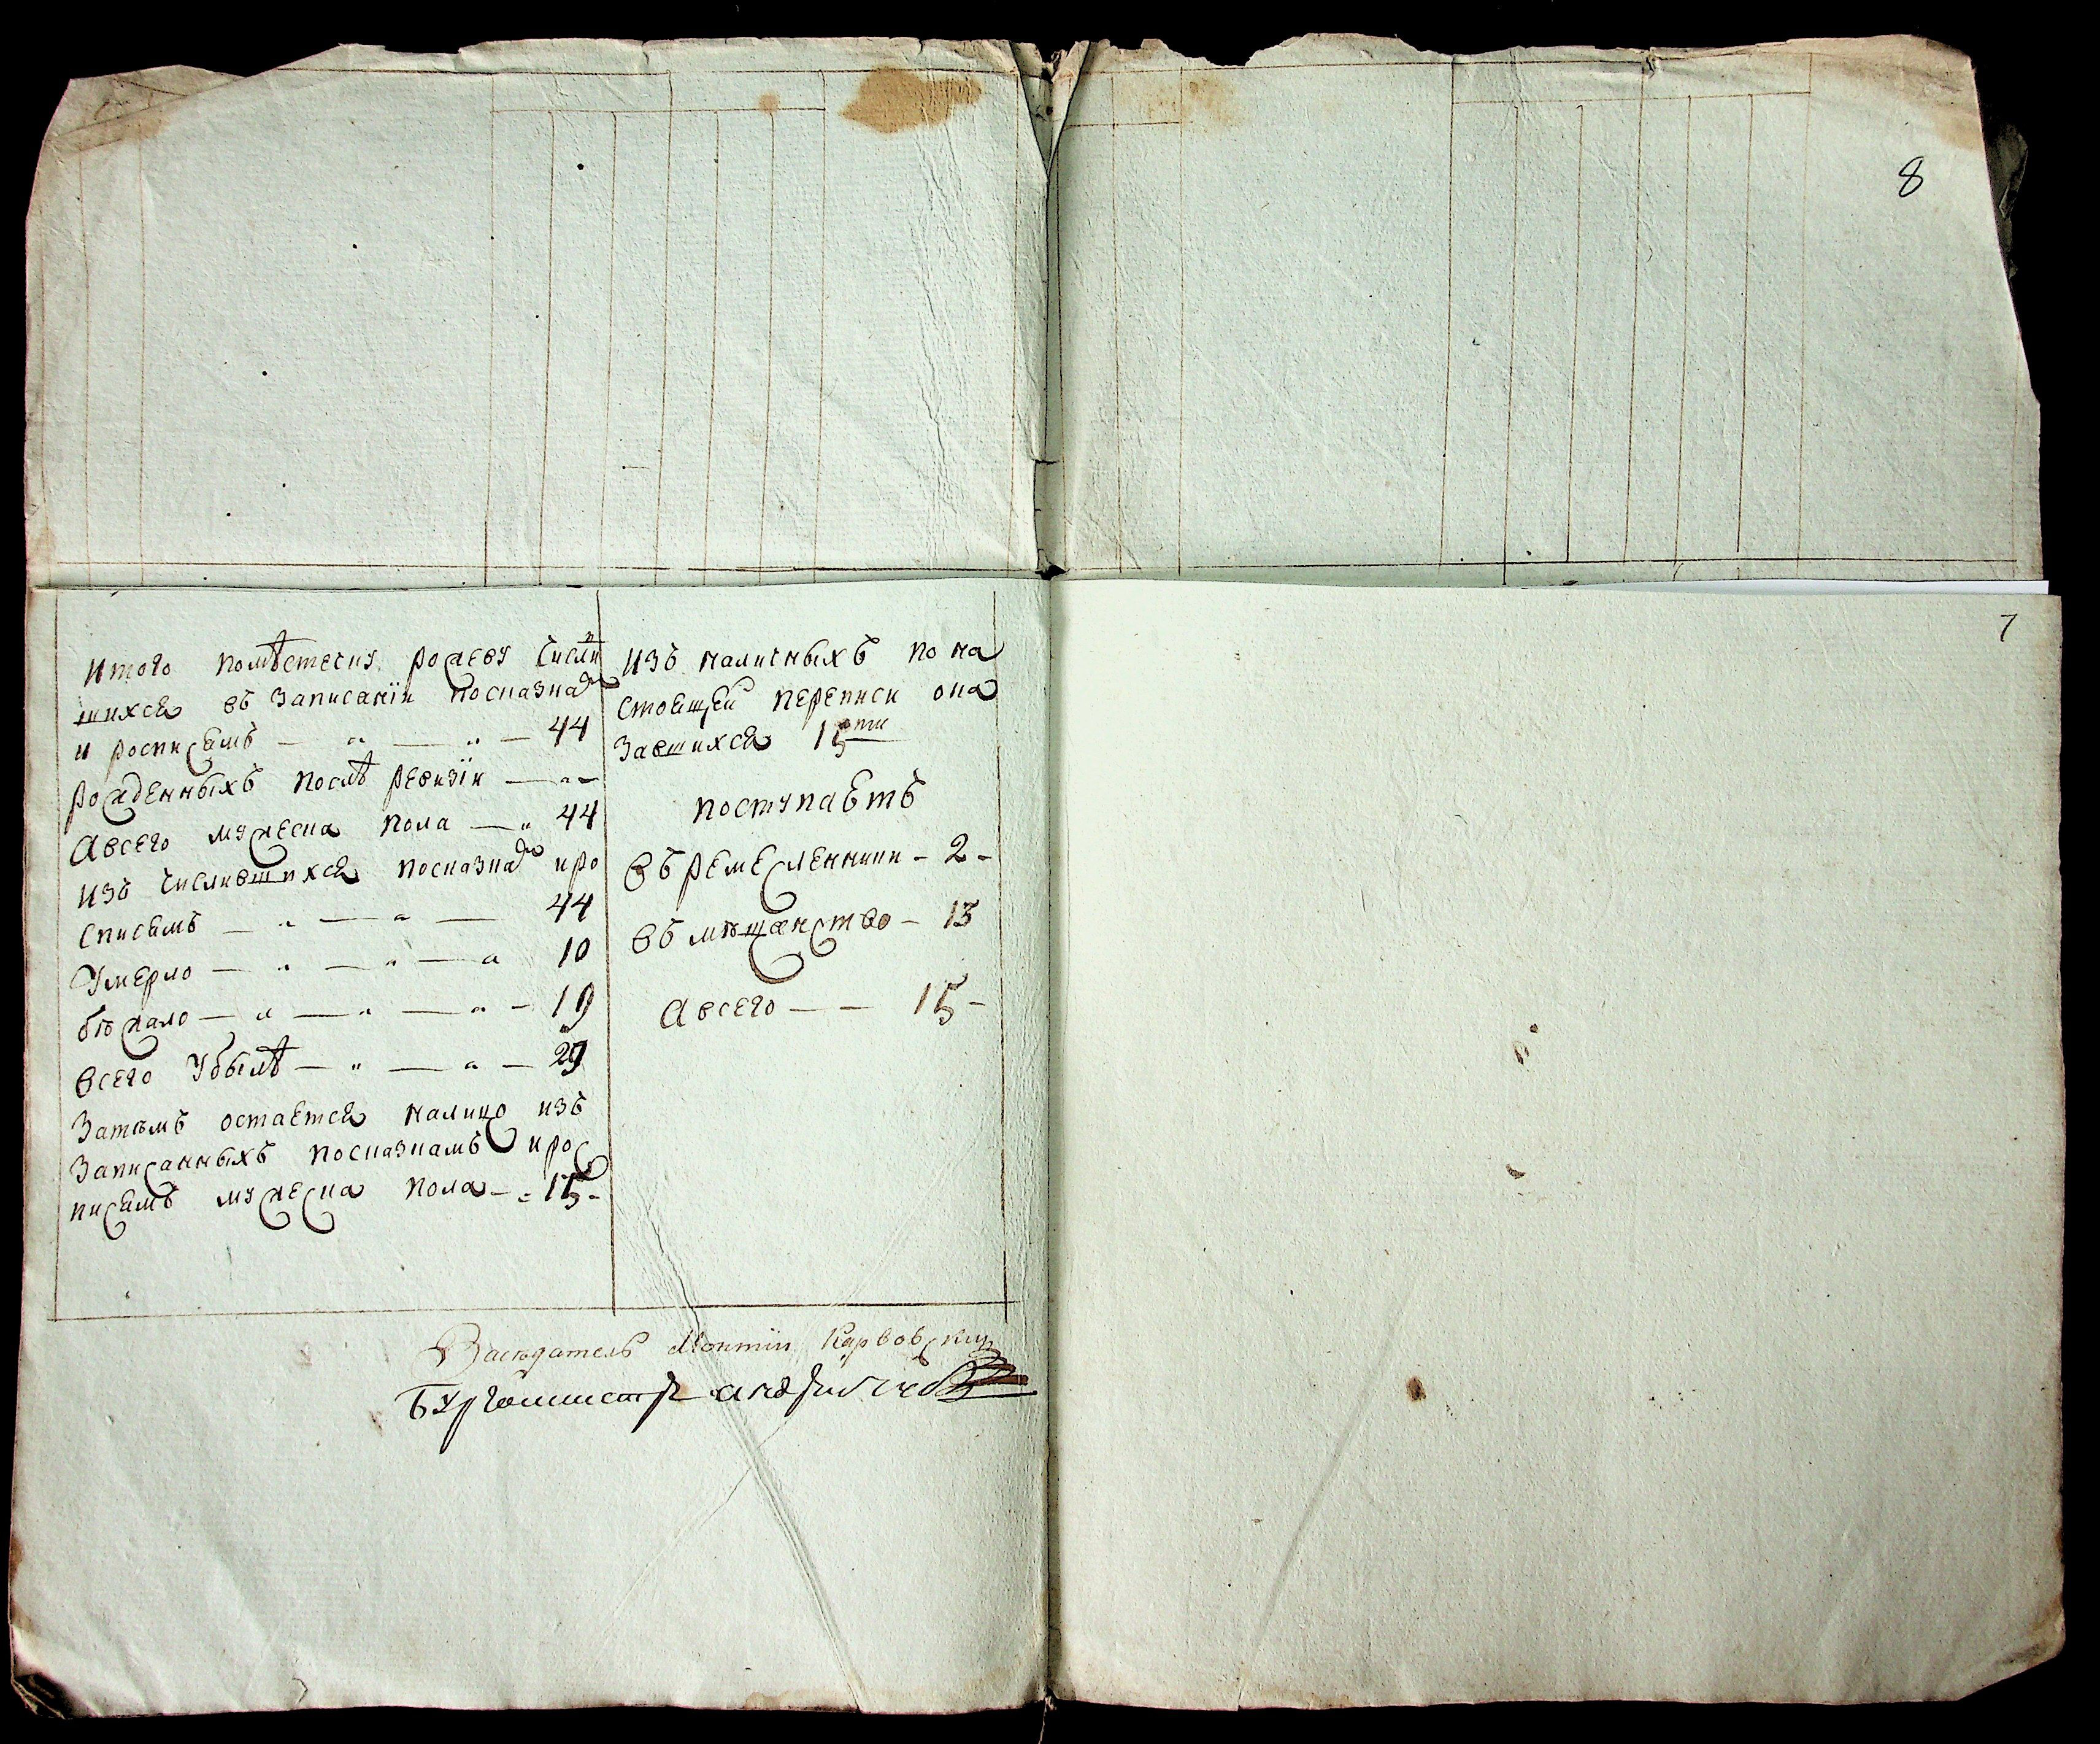 8
7
Итого поместечку рожеву числи
шихся въ записаніи посказкамъ
и росписямъ — „ — „ — 44
рожденныхъ послѣ ревизіи — „ —
Авсего мужеска пола — „ 44
изъ числившихся посказкамъ иро
списямъ — „ — „ — 44
Умерло — „ — „ — „ 10
бѣжало — „ — „ — „ — 19
всего Убылѣ — „ — „ — 29
Затѣмъ остаётся налицо изъ
Записанныхъ посказкамъ ирос
писямъ мужеска пола — „ 15 -
изъ наличныхъ по на
стоящей переписи ока
завшихся 15ти
поступаетъ
Въ ремесленники - 2 -
Въ мѣщанство - 13
Авсего — — 15 -
Засѣдатель Карвовски
Бургомистръ